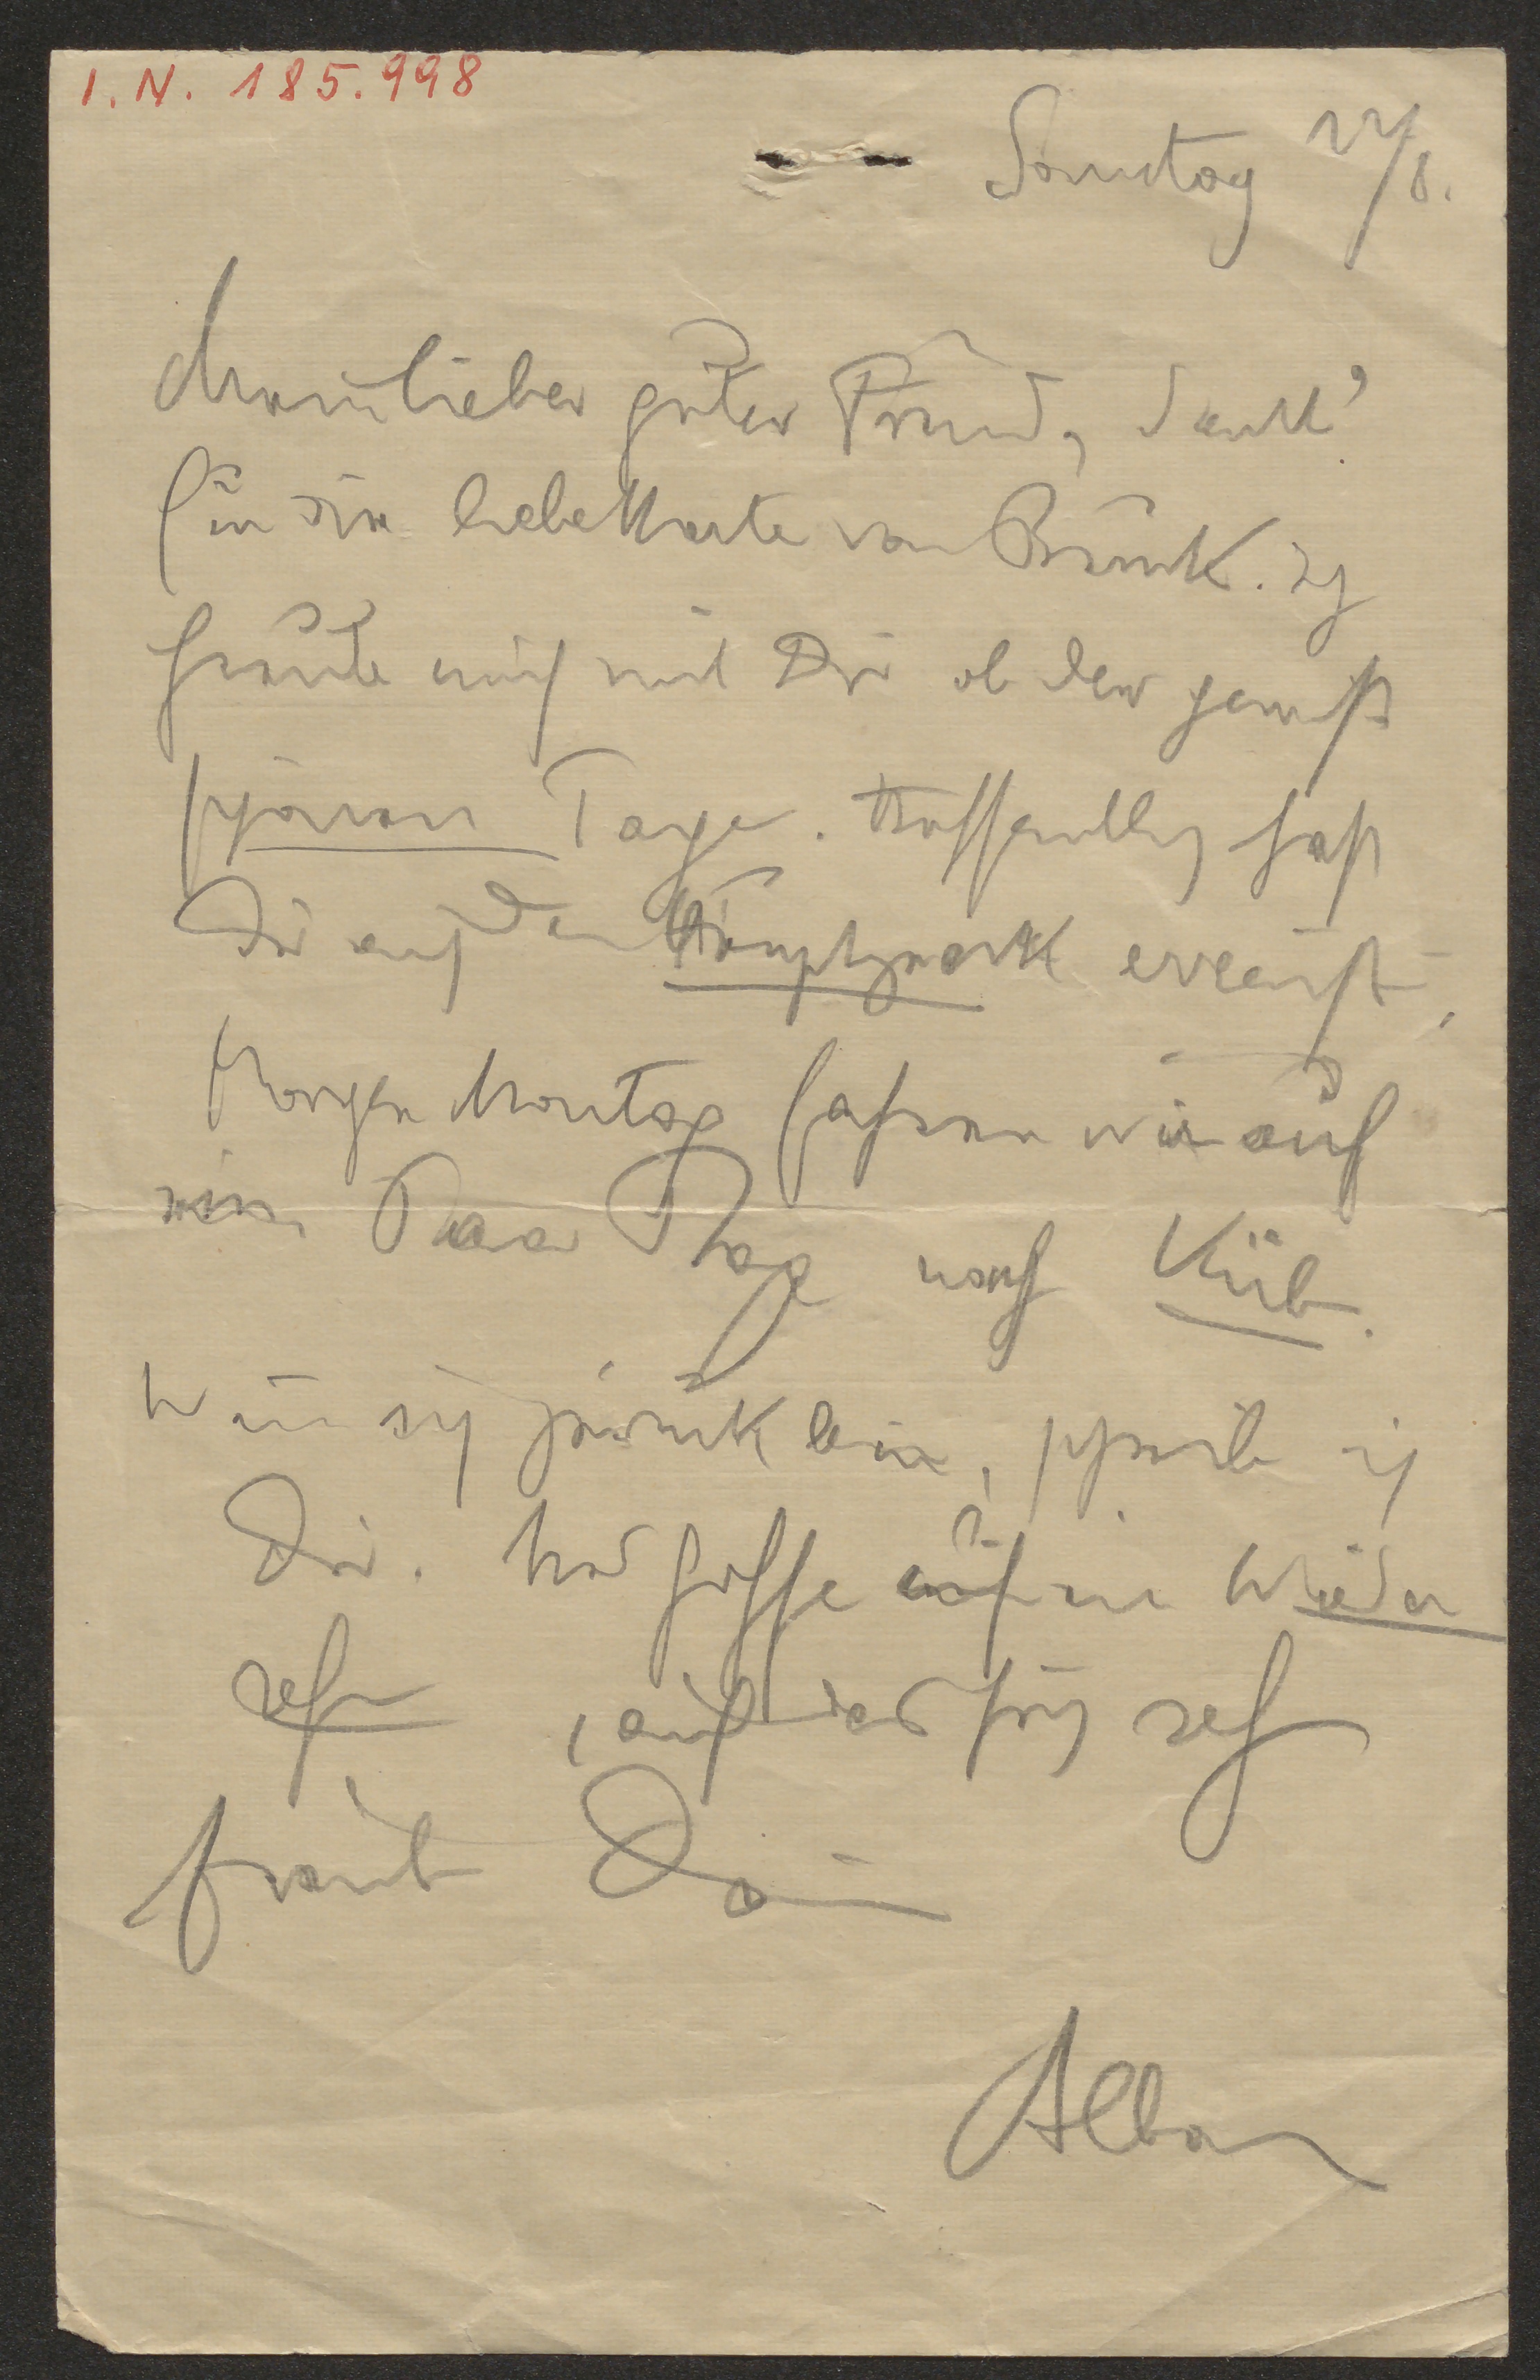 I.N. 185.998
Sonntag 27/8.
Mein lieber guter Freund, dank'
für die liebe Karte von Bruck. Ich
freute mich mit Dir ob der gewiß
schönen Tage. Hoffentlich hast
Du auch den Hauptzweck erreicht.
Morgen Montag fahren wir auf
ein Paar Tage nach Küb.
Wenn ich zurück bin, schreib ich
Dir. Und hoffe auf ein Wieder
sehn, auf das sich sehr
freut Dein
Alban